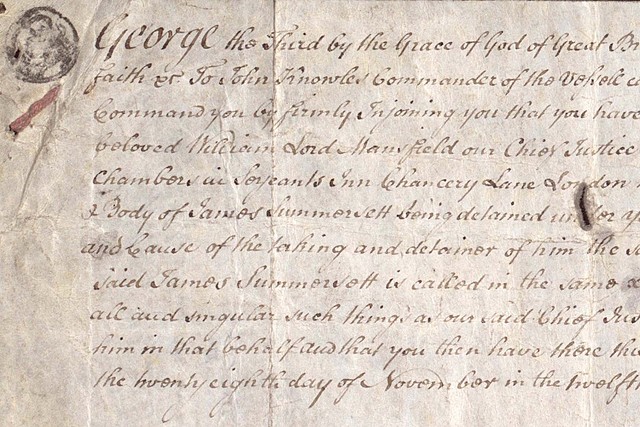 George the Third by the Grace of God of Great
faith &c To John Knowles Commander of the Vessell
Command you by firmly Injoining you that you have
beloved William Lord Mansfield our Chief Justice
Chambers in Serjeants Inn Chancery Lane London
& Body of James Summersett being detained under
and Cause of the taking and detainer of him the
Said James Summersett is called in the same
all and singular such things as our said Chief
him in that behalf and that you then have there
the twenty eighth day of November in the